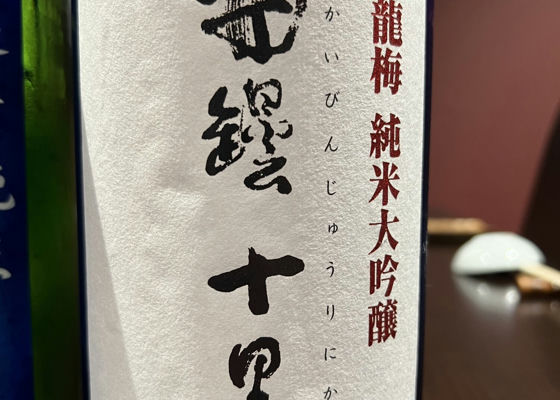 龍梅 純米大吟醸
かいびんじゅうりにか
罎十里